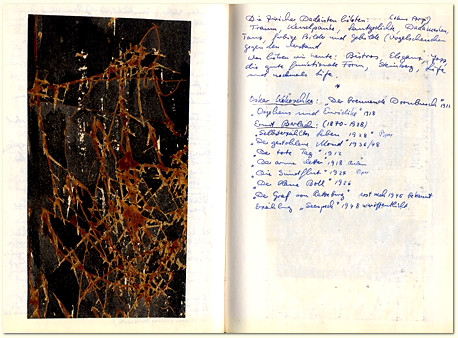 Die Züricher Dadaisten liebten: (Hans Arp)
Traum,
Tanz, farbige Bilder und Gebilde (Vogelscheuchen
gegen den Verstand
Wir lieben wir heute: Bistros, Eleganz, Jazz,
die gute funktionale Form, Steinberg, Life
und nochmals Life.
*
Oskar Kokoschka: "Der brennende Dornbusch" 1911
"Orpheus und Eurydike" 1918
Ernst Barlach: (1870-1938)
"Selbsterzähltes Leben 1928" Piper
"Der gestohlene Mond" 1936/48
"Der tote Tag" 1912
"Der arme Vetter" 1918
"Die Sündflut" 1924 Piper
"Der blaue Boll" 1926
"Der Graf von Ratzeburg" erst nach 1945 bekannt
Erzählung "Seespeck" 1948 veröffentlicht.